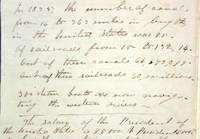 In 1835, the number of canals
from 14 to 363 miles in length
in the United States was 25.
of railroads from 15 to 132, 14.
Cost of these canals 64,
of these railroads 30 millions.
300 steam boats are now naviga-
ting the western rivers.
The salary of the President of
the United States is 25000 $